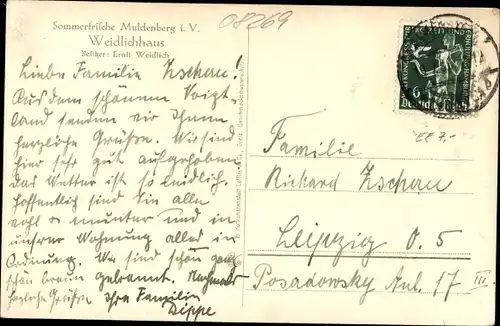 08269
Sommerfrische Muldenberg i. V.
Weidlichhaus
Besitzer: Ernst Weidlich
Liebe Familie Zschau!
Aus dem schönnen Voigt-
land senden wir Ihnen
herzliche Grüße. Wir sind
hier sehr gut aufgehoben
das Wetter ist so leidlich.
Hoffentlich sind Sie alle
wohl u munter und in
unsrer Wohnung alles in
Ordnung. Wir sind schon ganz
schön braun gebrannt. Nochmals
herzliche Grüße Ihre Familie
Dippe
6
Deutsches Reich
EE 7.-
Familie
Richard Zschau
Leipzig O. 5
Posadowsky Anl. 17 III.